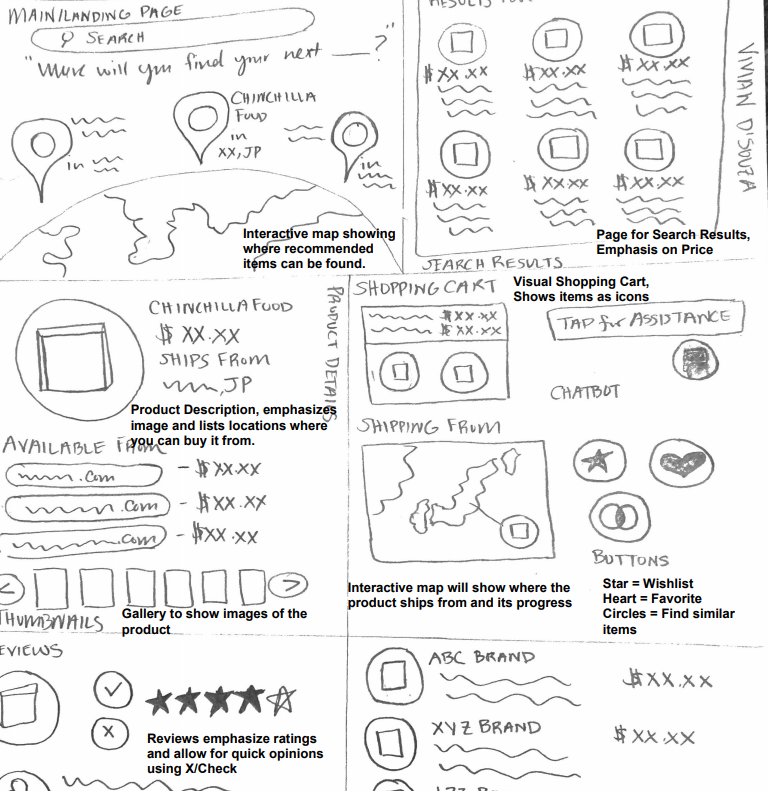 MAIN/LANDING PAGE
SEARCH
"Where will you find your next ____?"
CHINCHILLA
FOOD
in
XX, JP
in
in
Interactive map showing
where recommended
items can be found.
$XX.XX
$XX.XX
$XX.XX
$XX.XX
$XX.XX
$XX.XX
VIVIAN D'SOUZA
Page for Search Results,
Emphasis on Price
SEARCH RESULTS
CHINCHILLA FOOD
$ XX.XX
SHIPS FROM
, JP
PRODUCT DETAILS
Product Description, emphasizes
image and lists locations where
you can buy it from.
AVAILABLE FROM
.com - $XX.XX
.com - $XX.XX
.com - $XX.XX
< >
THUMBNAILS
Gallery to show images of the
product
SHOPPING CART
Visual Shopping Cart,
Shows items as icons
$XX.XX
$XX.XX
TAP for ASSISTANCE
CHATBOT
SHIPPING FROM
Interactive map will show where the
product ships from and its progress
BUTTONS
Star = Wishlist
Heart = Favorite
Circles = Find similar
items
EVIEWS
X
Reviews emphasize ratings
and allow for quick opinions
using X/Check
ABC BRAND
$XX.XX
XYZ BRAND
$XX.XX